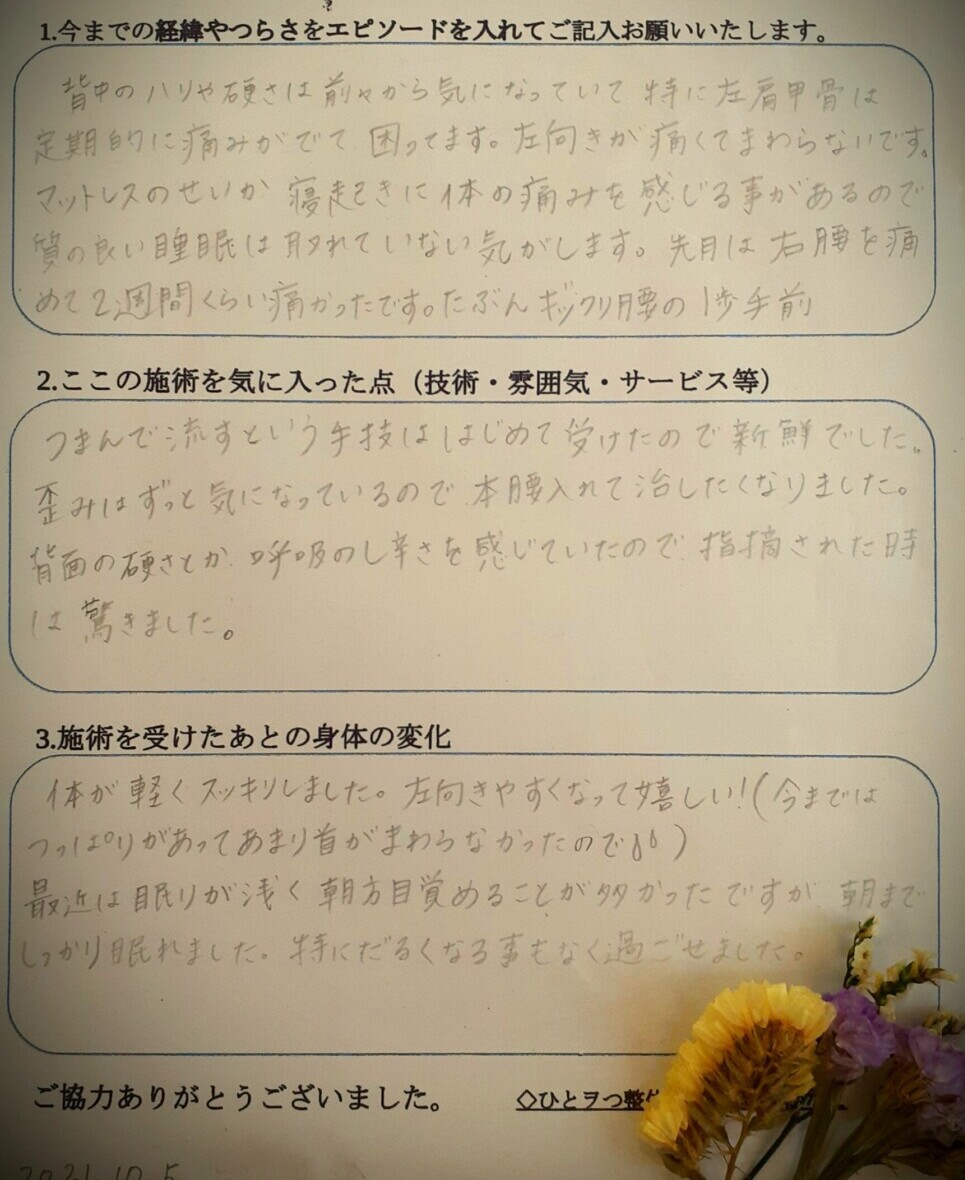 1.今までの経緯やつらさをエピソードを入れてご記入お願いいたします。
背中のハリや硬さは前々から気になっていて特に左肩甲骨は
定期的に痛みがでて困ってます。左向きが痛くてまわらないです。
マットレスのせいか寝起きに体の痛みを感じる事があるので
質の良い睡眠は取れていない気がします。先月は右腰を痛
めて2週間くらい痛かったです。たぶんギックリ腰の1歩手前
2.ここの施術を気に入った点（技術・雰囲気・サービス等）
つまんで流すという手技ははじめて受けたので新鮮でした。
歪みはずっと気になっているので本腰入れて治したくなりました。
背面の硬さとか呼吸のし辛さを感じていたので指摘された時
は驚きました。
3.施術を受けたあとの身体の変化
体が軽くスッキリしました。左向きやすくなって嬉しい!(今までは
つっぱりがあってあまり首がまわらなかったので)
最近は眠りが浅く朝方目覚めることが多かったですが朝まで
しっかり眠れました。特にだるくなる事もなく過ごせました。
ご協力ありがとうございました。 ◇ひとヲつ整
2021.10.5